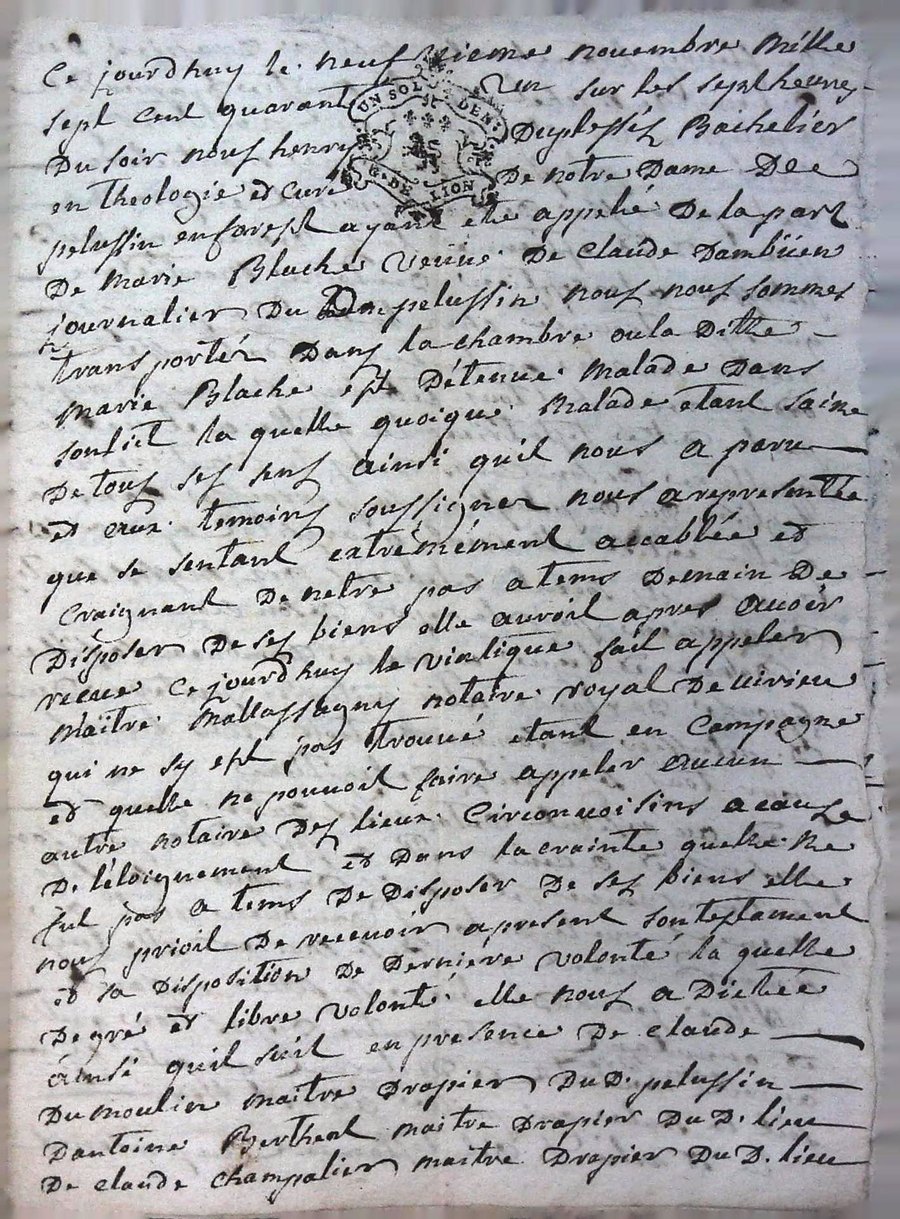 Ce jourdhuy le neufvieme novembre mille
sept cent quarant un sur les sept heures
Du soir nous henry Duplessis Bachelier
en theologie et Curé De notre Dame De
pelussin en forest ayant été appellé De la part
De Marie Blache veuve De Claude Dambuen
journalier Du D. pelussin nous nous sommes
transportéz Dans la chambre ou la Ditte
Marie Blache est Détenue Malade Dans
son lict la quelle quoique Malade etant saine
De tous ses sens ainsi quil nous a paru
et aux temoins soussignez nous a representée
que se sentant extrémément accablée et
Craignant De netre pas a tems Demain De
Disposer De ses biens elle auroit apres avoir
recue Ce jourdhuy le viatique fait appeler
Maitre Mallassagny notaire royal De virieu
qui ne sy est pas trouvé etant en Campagne
et quelle ne pouvoit faire appeler aucun
autre notaire Des lieux Circonvoisins a cause
De léloignement et Dans la crainte quelle ne
fut pas a tems De Disposer De ses biens elle
nous prioit De recevoir apresent son testament
et sa Disposition De Derniere volonté la quelle
De gré et libre volonté elle nous a Dictée
ainsi quil suit en presence De Claude
Dumoulin maitre Drapier Du D. pelussin
Dantoine Berthent maitre Drapier Du D. lieu
De Claude Champalier maitre Drapier Du D. lieu
UN SOL DEN.
G. DE LION